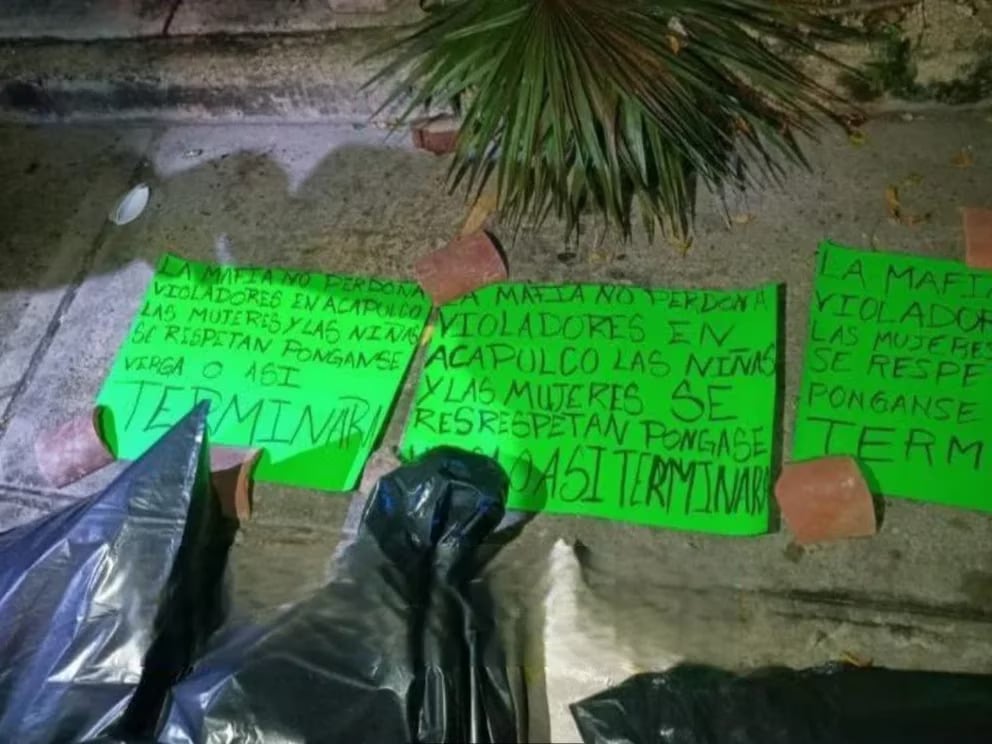 LA MAFIA NO PERDONA
VIOLADORES EN ACAPULCO
LAS MUJERES Y LAS NIÑAS
SE RESPETAN PONGANSE
VERGA O ASI
TERMINARA
LA MAFIA NO PERDONA
VIOLADORES EN
ACAPULCO LAS NIÑAS
Y LAS MUJERES SE
RESRESPETAN PONGASE
O ASI TERMINARA
LA MAFIA
VIOLADOR
LAS MUJERES
SE RESPE
PONGANSE
TERM